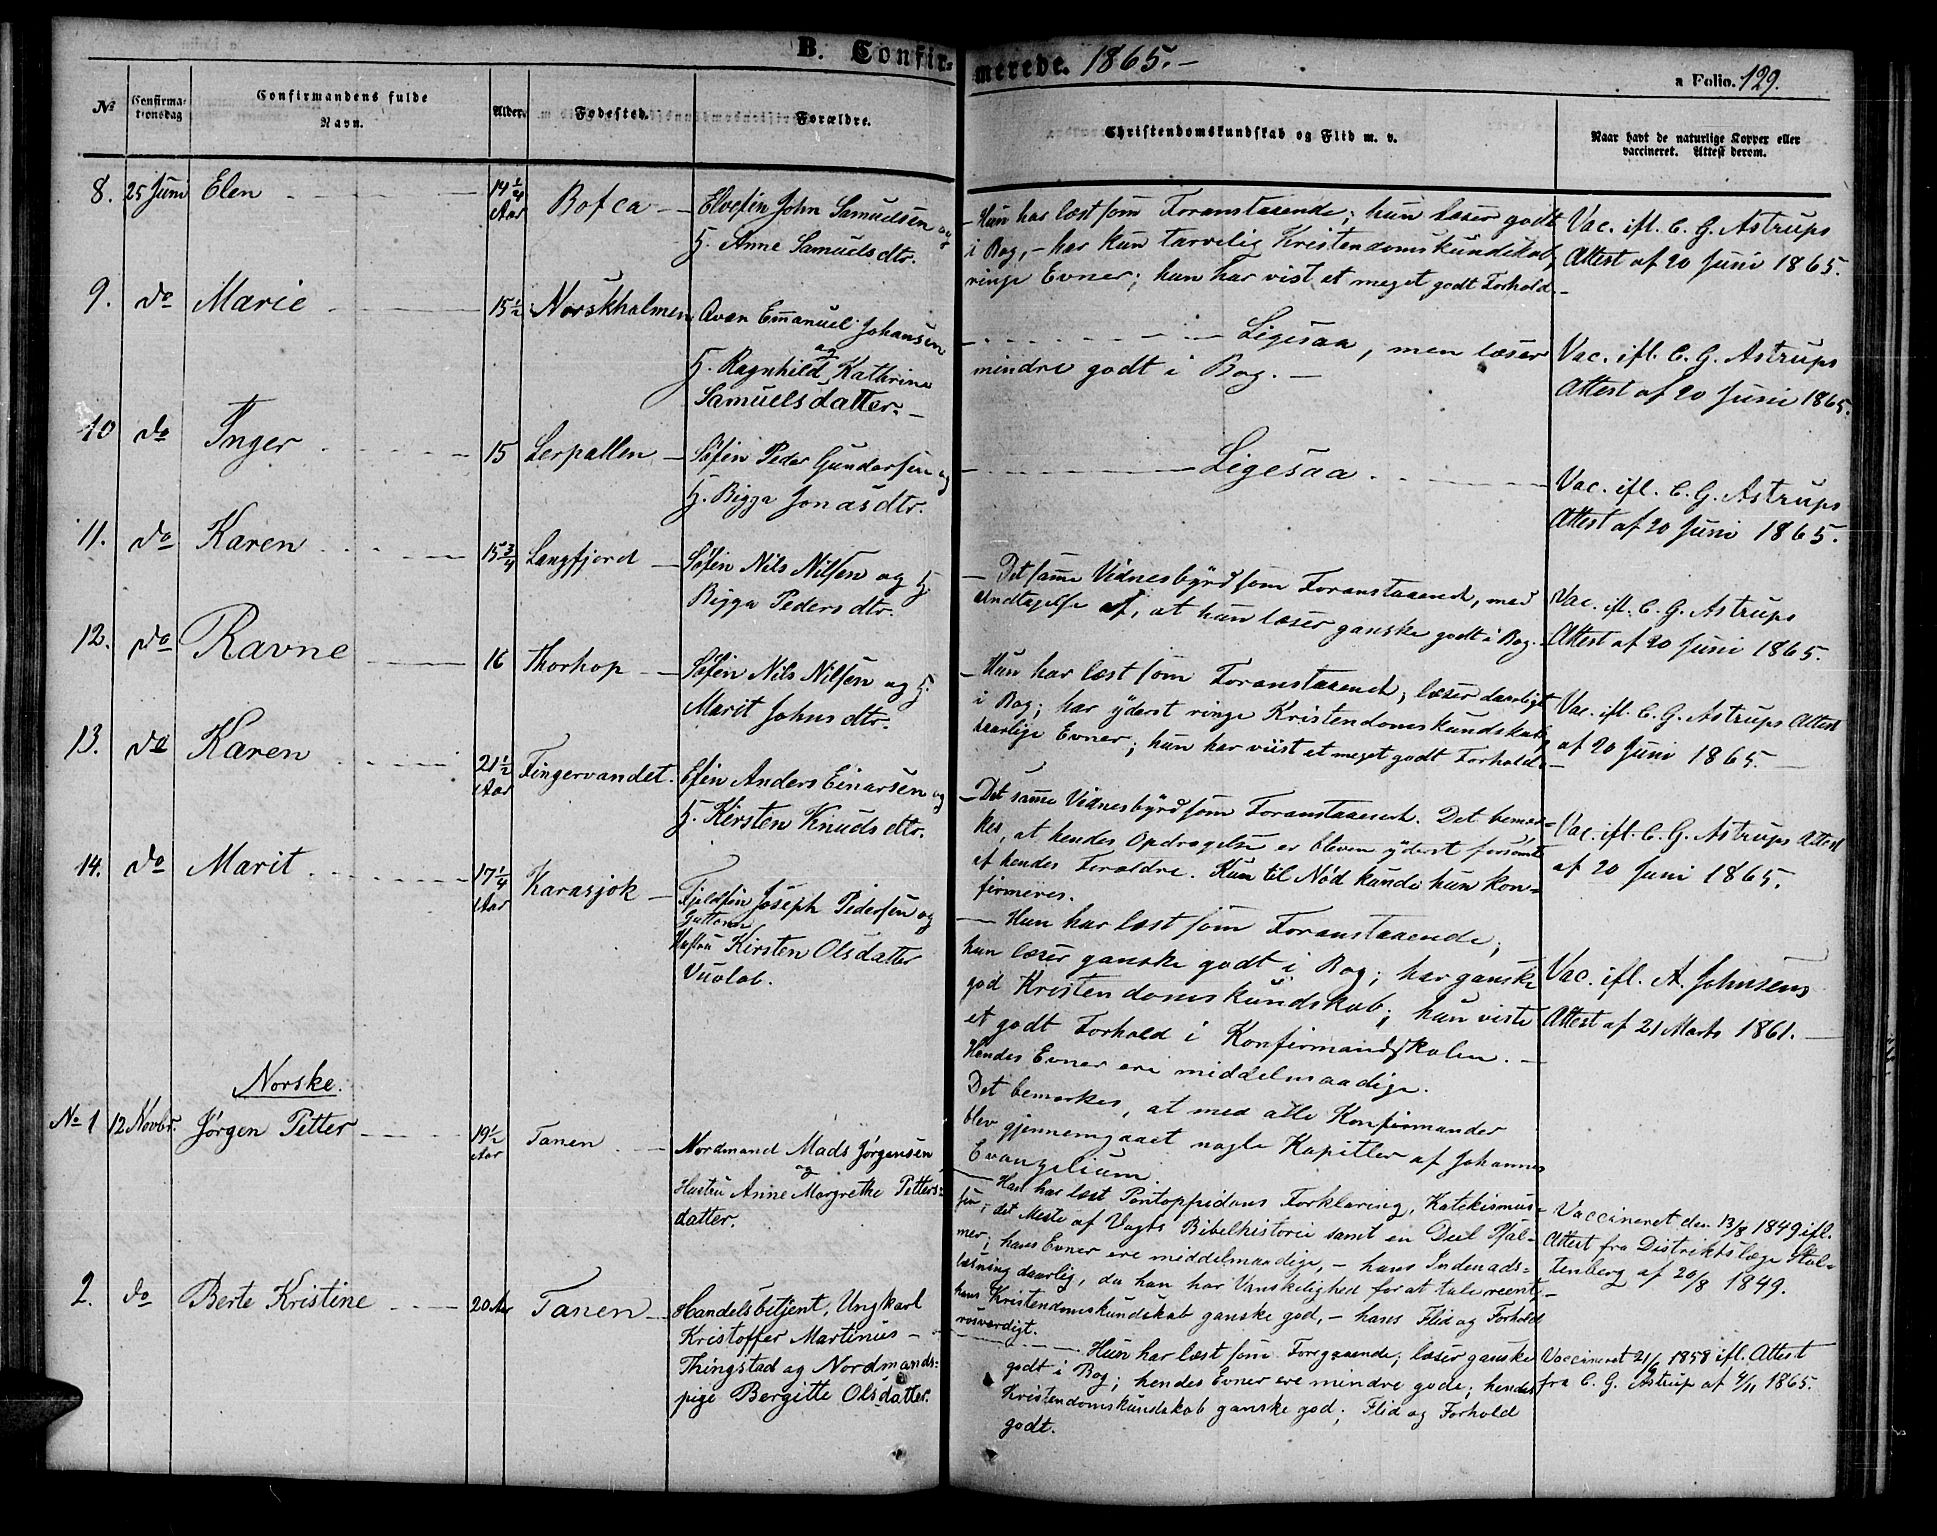 B. Confirmerede. 1865.-
a Folio. 129.
No
Confirmationsdag
Confirmandens fulde Navn.
Alder.
Fødested.
Forældre.
Christendomskundskab og Flid m. v.
Naar havt de naturlige Kopper eller vaccineret. Attest derom.
8. 25 Juni Elen 14 1/4 Aar Bofca
Elvefin John Samuelsen og
H. Anne Samuelsdtr.
Hun har læst som Foranstaaende; hun læser godt
i Bog, - har kun tarvelig Kristendomskundskab,
ringe Evner; hun har vist et meget godt Forhold
Vac. ifl. C. G. Astrups
Attest af 20 Juni 1865.
9. do Marie 15 1/2 Norskholmen
Qvæn Emanuel Johansen
og
H. Ragnhild Kathrine
Samuelsdatter.-
Ligesaa, men læser
mindre godt i Bog.-
Vac. ifl. C. G. Astrups
Attest af 20 Juni 1865.
10 do Inger 15 Lerpollen
Søfin Peder Gundersen og
H. Bigga Jonasdtr.
Ligesaa
Vac. ifl. C. G. Astrups
Attest af 20 Juni 1865.
11. do Karen 15 3/4 Langfjord
Søfin Nils Nilsen og H.
Bigga Pedersdtr.
- Det samme Vidnesbyrd som Foranstaaende, med
Undtagelse af, at hun læser ganske godt i Bog.
Vac. ifl. C. G. Astrups
Attest af 20 Juni 1865.
12. do Ravne 16 Thorhop
Søfin Nils Nilsen og H.
Marit Johnsdtr.
- Hun har læst som Foranstaaende; læser daarligt
i Bog; har yderst ringe Kristendomskundskab,
daarlige Evner; hun har viist et meget godt Forhold.
Vac. ifl. C. G. Astrups Attest
af 20 Juni 1865.
13. do Karen 21 1/2 Aar Fingervandet.
Efin Anders Einarsen og
H. Kirsten Knudsdtr.
- Det samme Vidnesbyrd som Foranstaaende. Det bemær-
kes, at hendes Opdragelse er bleven yderst forsømt
af hendes Forældre. Kun til Nød kunde hun kon-
firmeres.
Vac. ifl. C. G. Astrups Attest
af 20 Juni 1865.
14. do Marit 17 1/4 Aar Karasjok
Fjeldfin Joseph Pedersen og
Hustru Kirsten Olsdatter
Vuolab.
- Hun har læst som Foranstaaende;
hun læser ganske godt i Bog; har ganske
god Kristendomskundskab; hun viste
et godt Forhold i Konfirmandskolen.-
Hendes Evner ere middelmaadige.
Det bemærkes, at med alle Konfirmander
blev gjennemgaaet nogle Kapitler af Johannes
Evangelium.
Vac. ifl. A. Johnsens
Attest af 21 Marts 1861.
Norske.
No 1 12 Novbr. Jørgen Petter 19 1/2 Aar Tanen
Nordmand Mads Jørgensen
og
Hustru Anne Margrethe Petters-
datter.
- Han har læst Pontoppidans Forklaring, Katekismus-
sen, det Meste af Vogts Bibelhistorie samt en Deel Psal-
mer; hans Evner ere middelmaadige, - hans Indenads-
læsning daarlig, da han har Vanskelighed for at tale reent,
hans Kristendomskundskab ganske god, - hans Flid og Forhold
rosværdigt.
Vaccineret den 13/8 1849 ifl.
Attest fra Distriktslæge Stol-
tenberg af 20/8 1849.
2. do Berte Kristine 20 Aar Tanen
Handelsbetjent, Ungkarl
Kristoffer Martinus
Thingstad og Nordmands-
pige Bergitte Olsdatter.
Hun har læst som Foregaaende; læser ganske
godt i Bog; hendes Evner ere mindre gode; hendes
Kristendomskundskab ganske god; Flid og Forhold
godt.
Vaccineret 21/6 1858 ifl. Attest
fra C. G. Astrup af 4/11 1865.